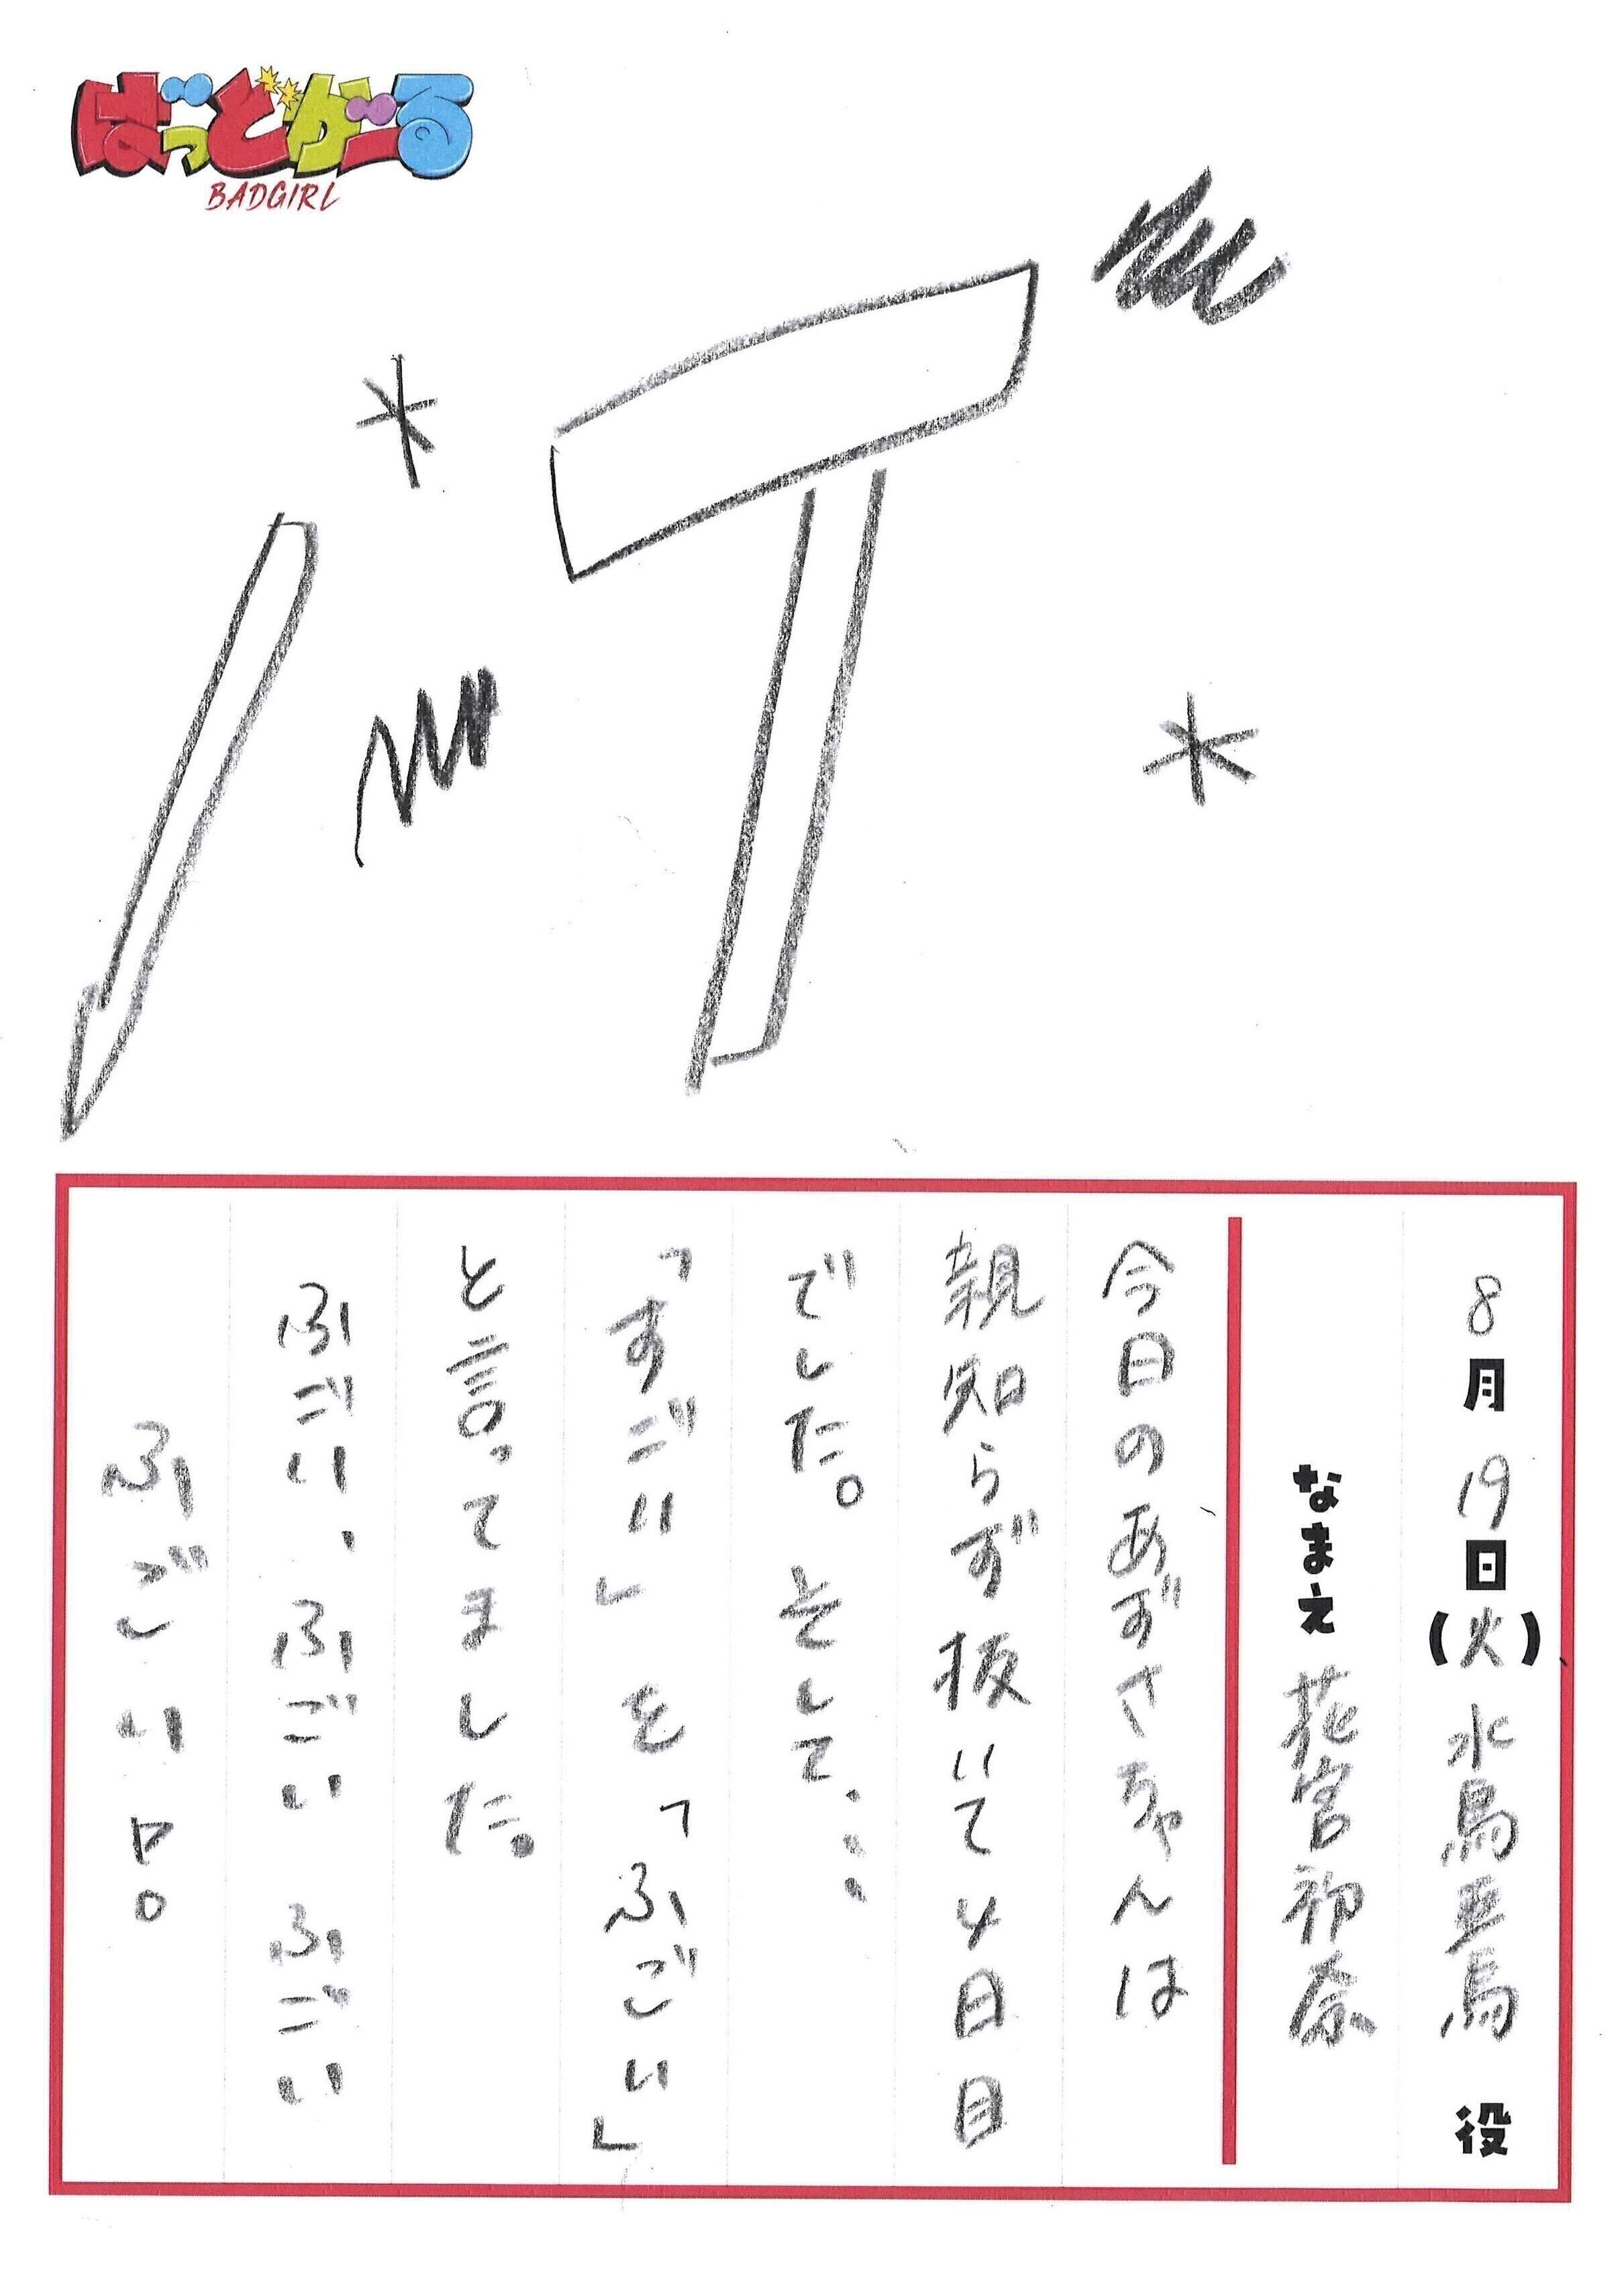 ばっどがーる
BADGIRL
8月19日(火)水鳥亜鳥 役
なまえ 花宮初奈
今日のあずさちゃんは
親知らず抜いて4日目
でした。そして、...
「すごい」を「ふごい」
と言ってました。
ふごい、ふごい ふごい
ふごい